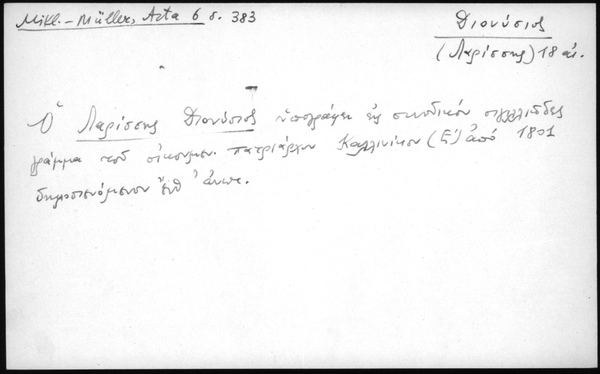 Mikl.-Müller, Acta 6 σ. 383
Διονύσιος
(Λαρίσσης) 18 αι.
Ὁ Λαρίσσης Διονύσιος ὑπογράφει εἰς συνοδικόν σιγγιλιῶδες
γράμμα τοῦ οἰκουμεν. πατριάρχου Καλλινίκου (Ε') ἀπό 1801
δημοσιευόμενον ἔνθ' ἀνωτ.